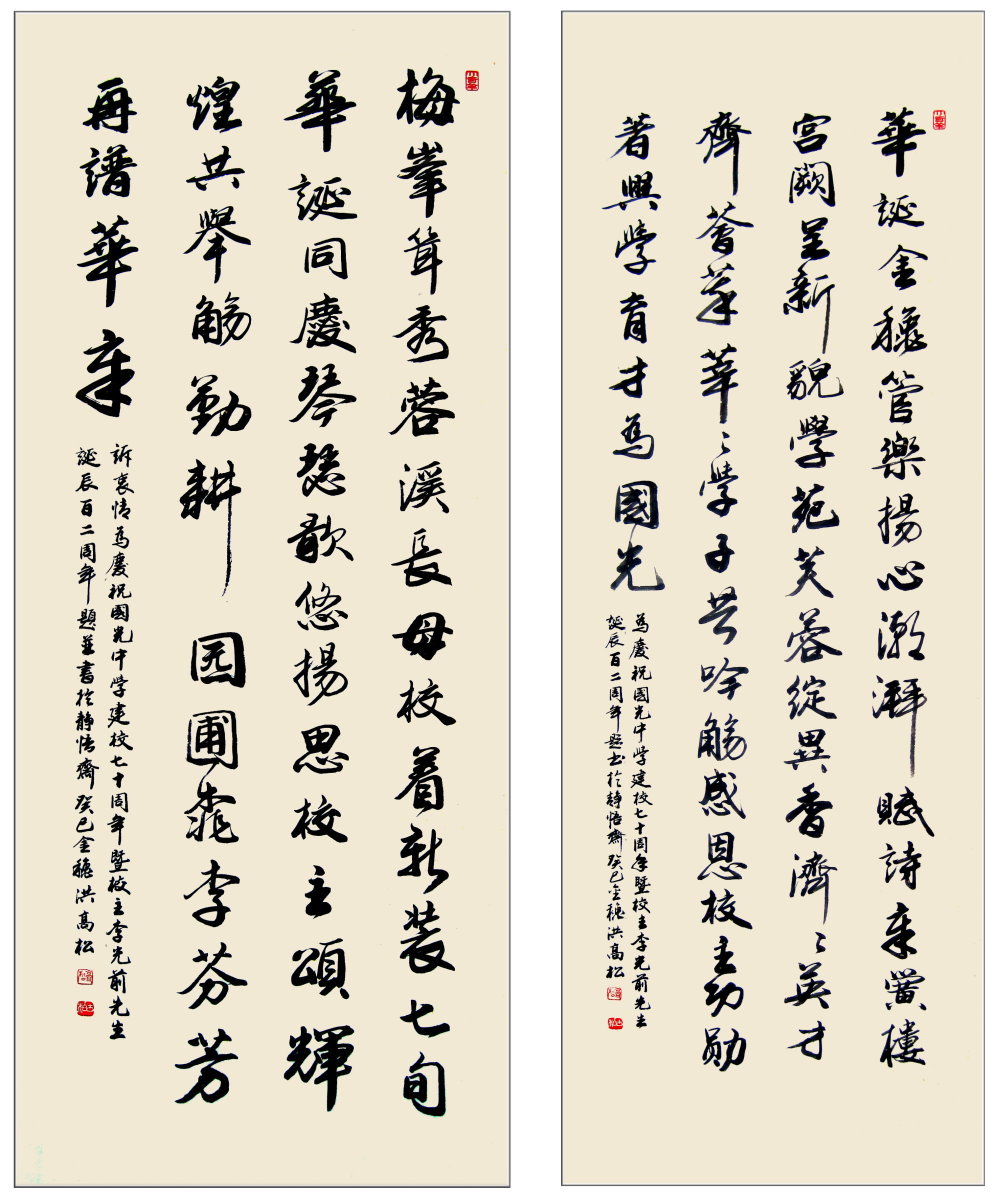 華誕金穗管樂揚心潮湃賦詩章黌樓
宫闕呈新貌學苑芙蓉綻異香濟〻英才
齊薈萃莘〻學子共吟觴感恩校主功勋
著興學育才為國光
為慶祝國光中学建校七十周年暨校主李光前先生
誕辰百二周年題书於静悟齋癸巳金穗洪高松
梅峯耸秀蓉溪長母校着新装七旬
華誕同慶琴瑟歌悠揚思校主頌輝
煌共舉觴勤耕园圃桃李芬芳
再譜華章
訴衷情為慶祝國光中學建校七十周年暨校主李光前先生
誕辰百二周年題並書於静悟齋癸巳金穗洪高松